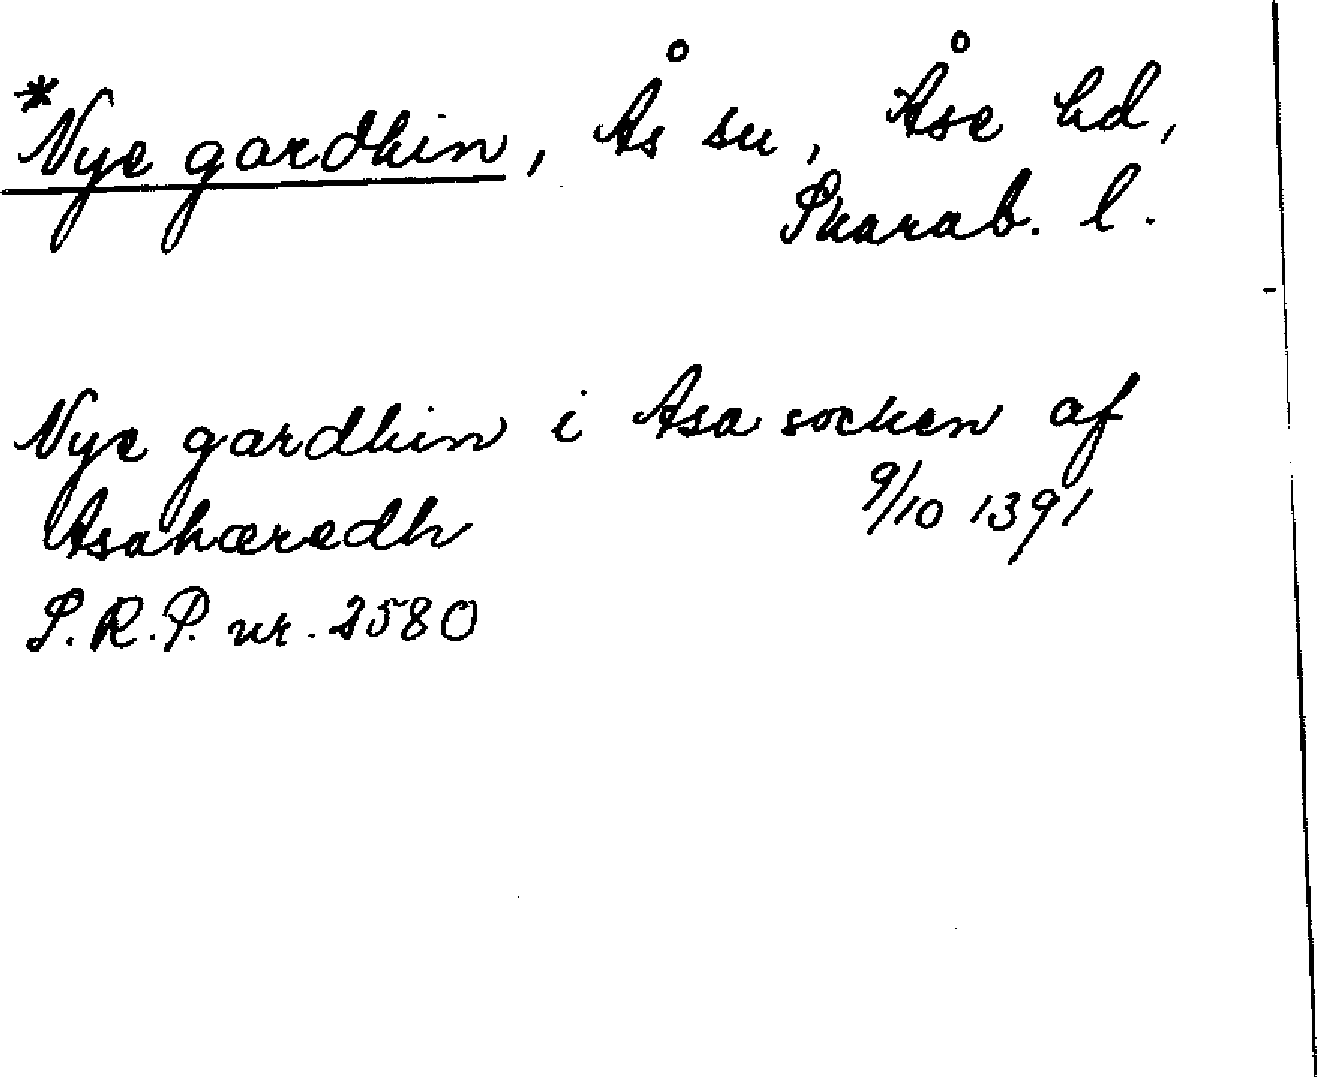 *Nye gardhin, Ås sn, Åse hd,
Skarab. l.
Nye gardhin i Asa socken af
Asahæredh 9/10 1391
S.R.P. nr. 2580